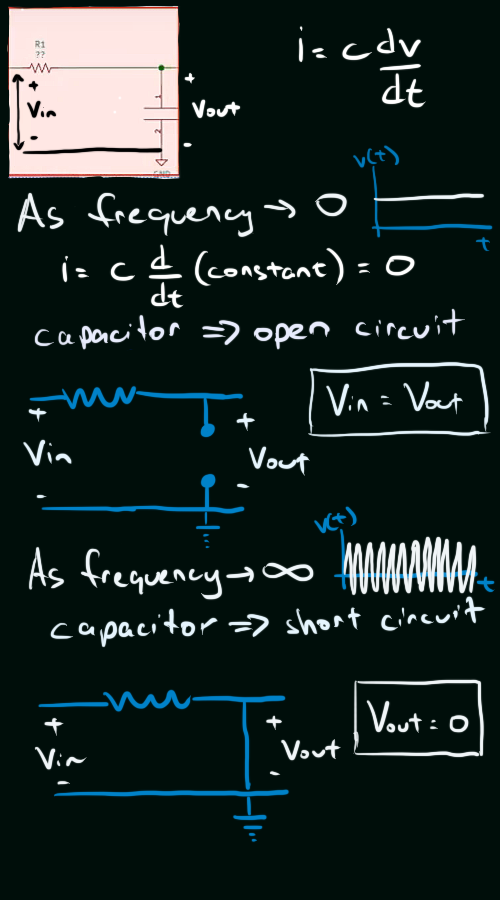 R1
??
+
Vin
-
1
2
+
Vout
-
i = c dv/dt
As frequency → 0
v(t)
t
i = c d/dt (constant) = 0
capacitor ⇒ open circuit
Vin = Vout
+
Vin
-
+
Vout
-
As frequency → ∞
v(t)
t
capacitor ⇒ short circuit
Vout = 0
+
Vin
-
+
Vout
-